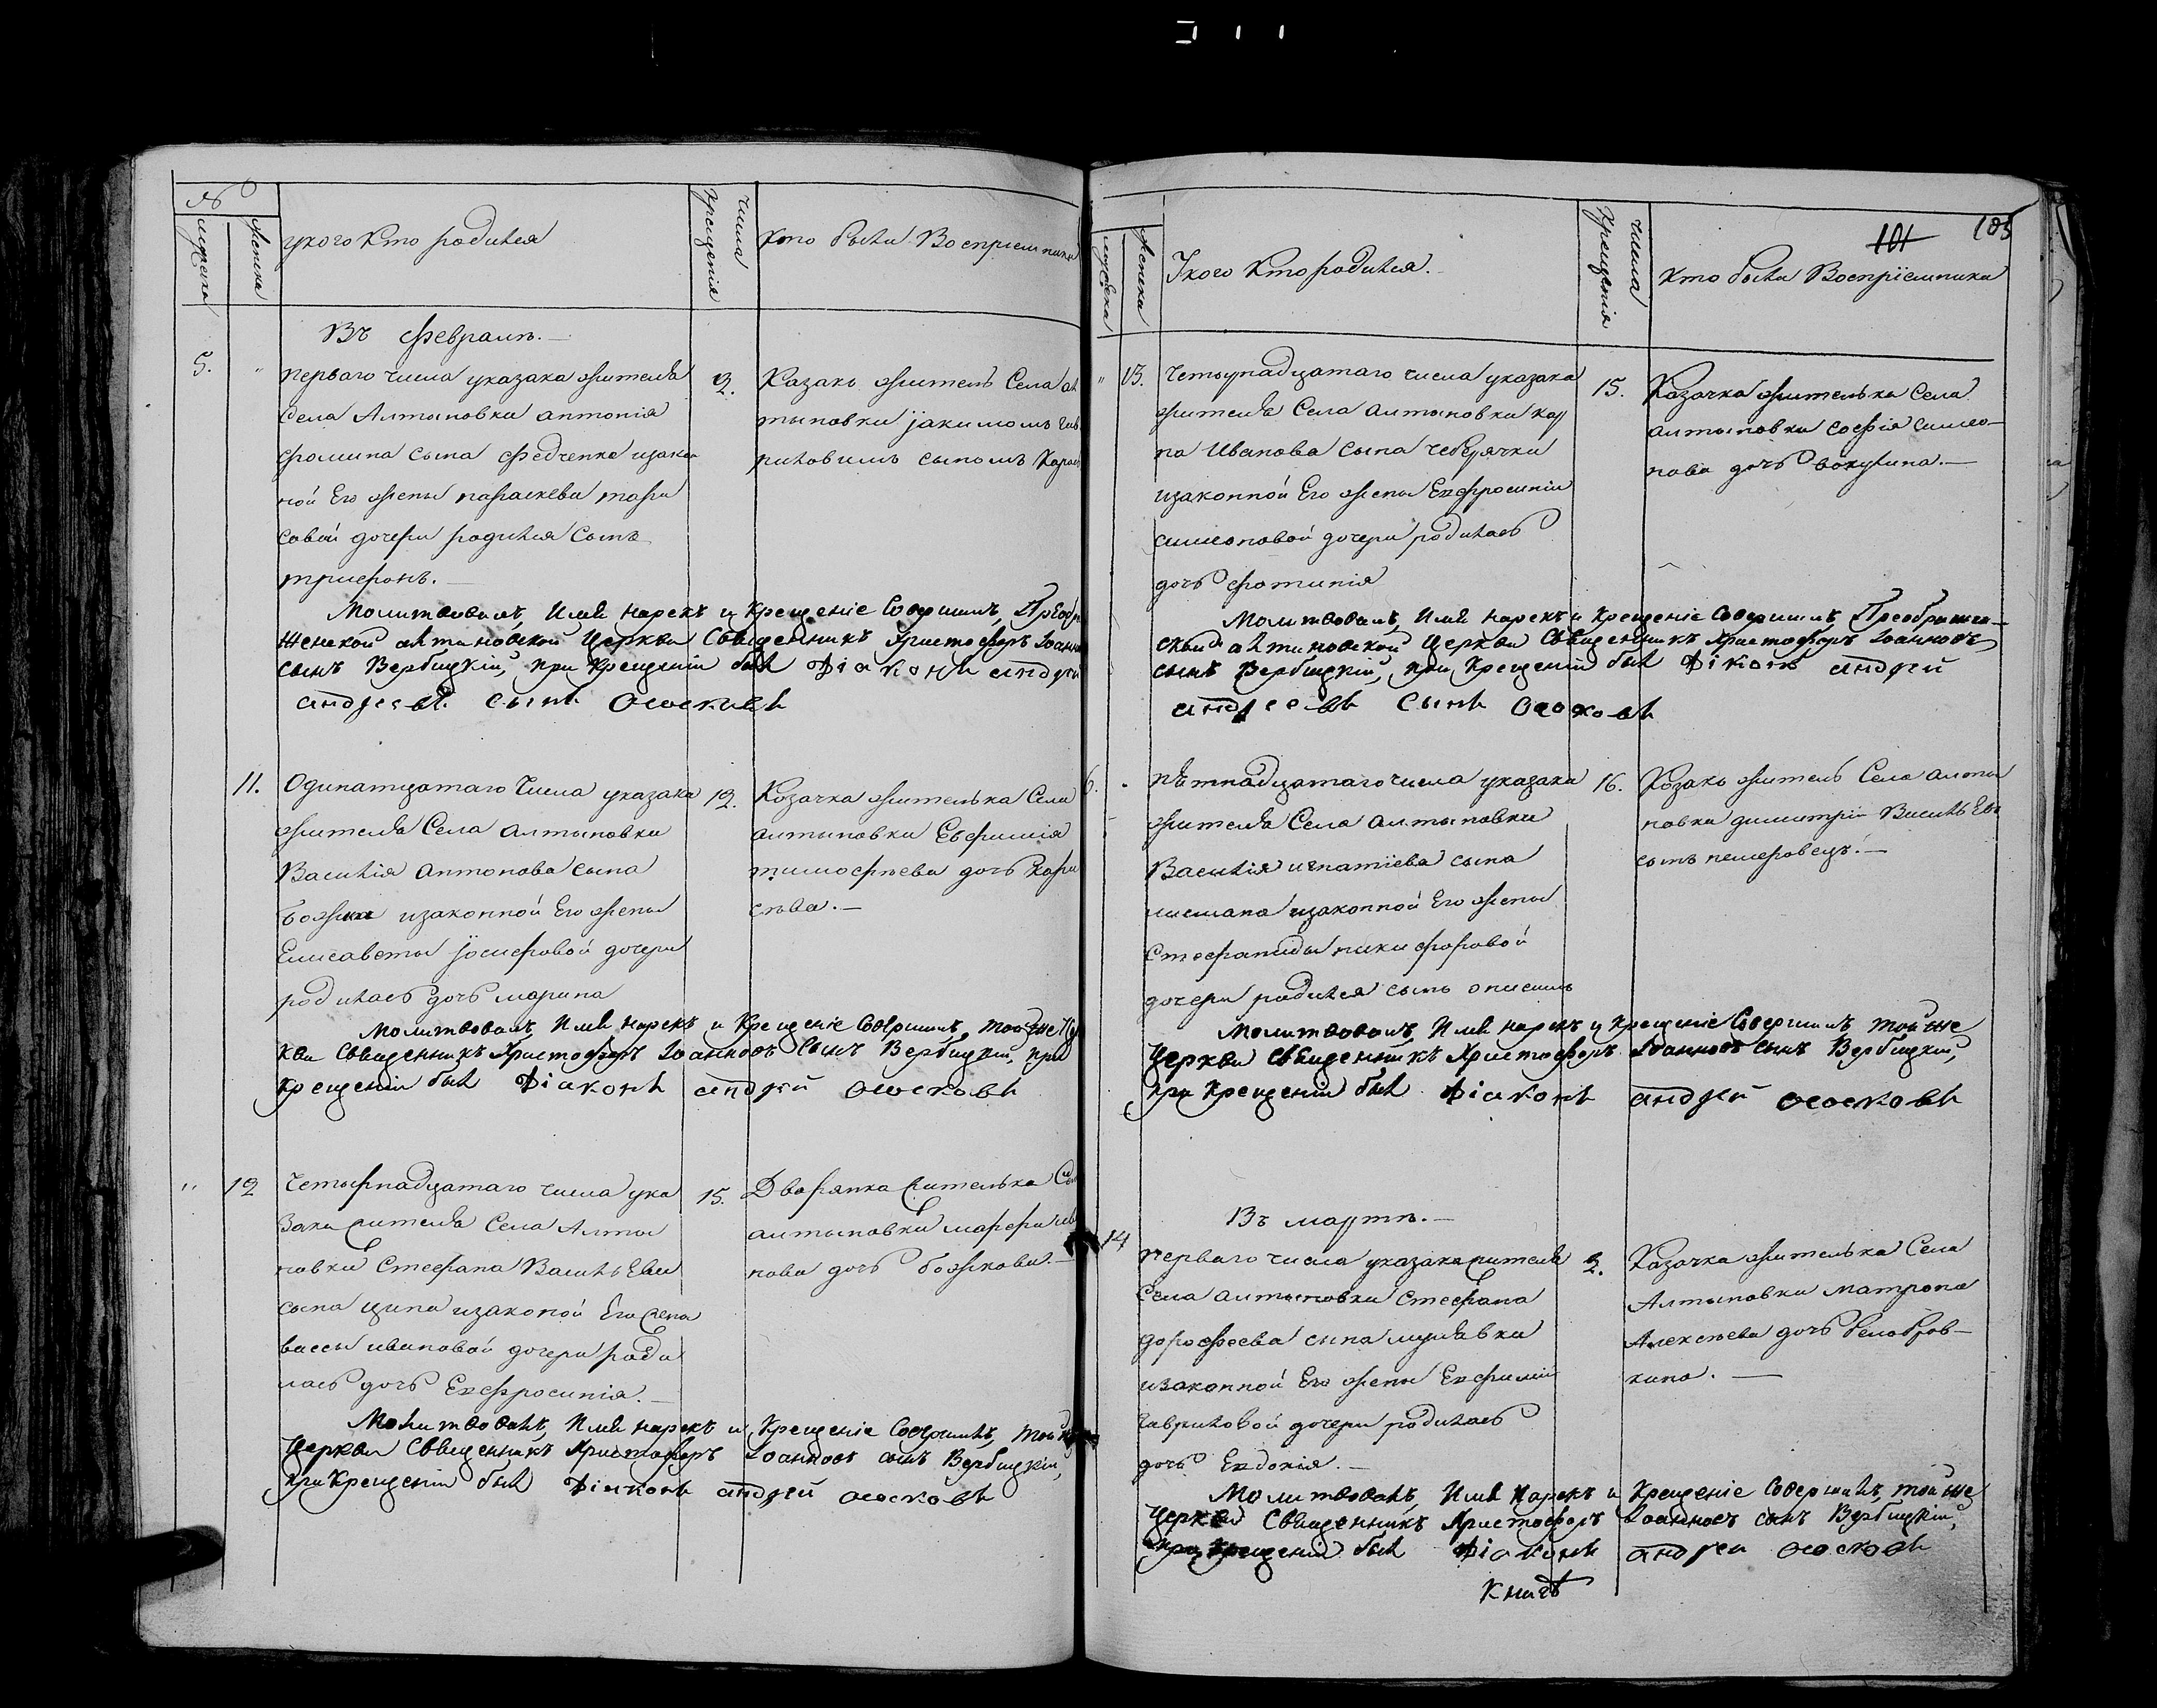 №
мужеска
женска
у кого кто родился
числа крещенія
кто были Восприемники
Въ февралѣ.
5.
перваго числа указака жителя
села Алтыновки антонія
фомина сына федченка изакон
ной Его жены параскеви тара
совой дочери родился сынъ
трифонъ.
2.
Казакъ житель Села ал
тыновки іакимомъ гав
риловимъ сыномъ
Молитвовалъ, Имя нарекъ и крещеніе Совершилъ, Преобра
женской алтиновской Церкви Священникъ Христофоръ Іоанно
сынъ Вербицкій, при Крещеніи былъ Діаконъ андрей
андреевъ сынъ Ососковъ
11.
Одинатцатаго Числа указака
жителя Села алтыновки
Василія антонова сына
Божка изаконной Его жены
Елисаветы іосифовой дочери
родилась дочъ марина
12.
Козачка жителька Села
алтыновки Евфимія
тимофѣева дочъ
Молитвовалъ, Имя нарекъ и Крещеніе Совершилъ, той же Цер
кви Священникъ Христофоръ Іоанновъ Сынъ Вербицкій, при
крещеніи былъ Діаконъ андрей ососковъ
12
Четырнадцатаго числа ука
зака жителя Села Алты
новки Стефана Васильева
сына ципа изаконой Его жены
вассы ивановой дочери роди
лась дочъ Евфросинія.
15.
Дворянка жителька Села
алтыновки марфа
нова дочъ божкова.
Молитвовалъ, Имя нарекъ и Крещеніе Совершилъ, той же
Церкви Священникъ Христофоръ Іоанновъ сынъ Вербицкій,
при Крещеніи былъ Діаконъ андрей ососковъ
101 105
мужеска
женска
У кого кто родился.
числа крещенія
кто были Воспріемники
13.
Четырнадцатаго числа указака
жителя Села алтыновки кар
па Иванова сына чеберячки
изаконной Его жены Евфросиніи
симоновой дочери родилась
дочъ фотинія
15.
Казачка жителька Села
алтыновки софія симо-
нова дочъ вакулина.
Молитвовалъ, Имя нарекъ и крещеніе Совершилъ, Преображен-
ской алтиновской Церкви Священникъ Христофоръ Іоанновъ
сынъ Вербицкій, при Крещеніи былъ Діаконъ андрей
андреевъ Сынъ Ососковъ
6.
пятнадцатаго числа указака
жителя Села алтыновки
Василія игнатіева сына
изаконной Его жены
Стефаниды никифоровой
дочери родился сынъ онисимъ
16.
Козакъ житель Села алты
новки димитрій Васильевъ
сынъ
Молитвовалъ, Имя нарекъ и крещеніе Совершилъ, той же
Церкви Священникъ Христофоръ Іоанновъ сынъ Вербицкій,
при Крещеніи былъ Діаконъ андрей ососковъ
Въ мартѣ.
14
перваго числа указака жителя
Села алтыновки Стефана
дорофеева сына мулявки
изаконной Его жены Евфиміи
гавриловой дочери родилась
дочъ Евдокія.
2.
Казачка жителька Села
Алтыновки матрона
Алексѣева дочъ белобров-
кина.
Молитвовалъ, Имя нарекъ и Крещеніе Совершилъ, той же
Церкви Священникъ Христофоръ Іоанновъ сынъ Вербицкій,
при Крещеніи былъ Діаконъ андрей ососковъ